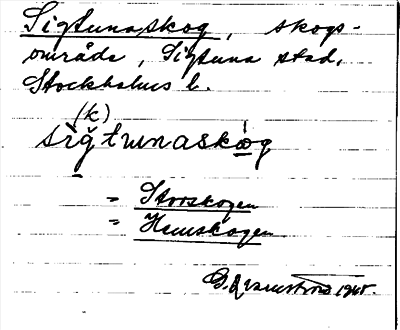 Sigtunaskog, skogs-
område, Sigtuna stad,
Stockholms l.
(k)
sìg̀tunaskóg
= Storskogen
= Hemskogen
1945.